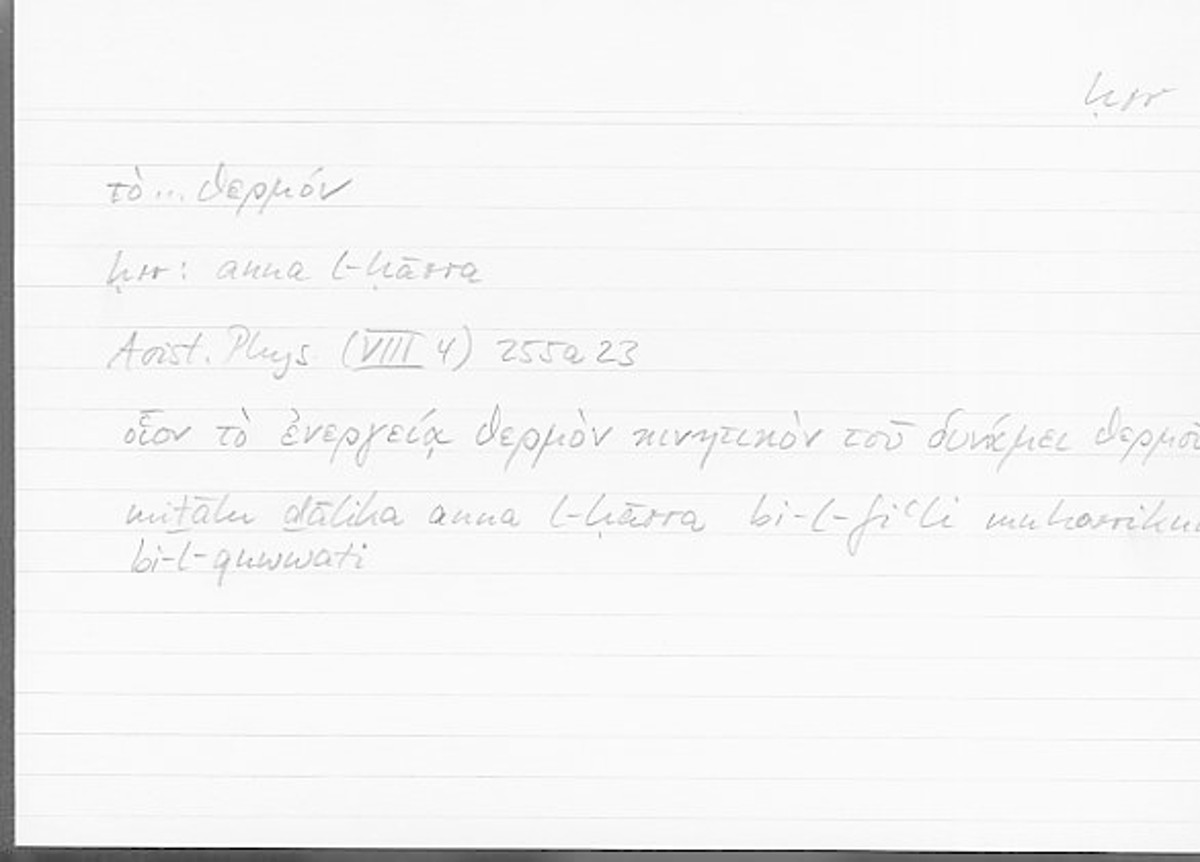 ḥrr
τὸ... θερμόν
ḥrr: anna l-ḥārra
Arist. Phys. (VIII 4) 255a23
οἷον τὸ ἐνεργείᾳ θερμὸν κινητικὸν τοῦ δυνάμει θερμοῦ
miṯālu ḏālika anna l-ḥārra bi-l-fiʿli
bi-l-quwwati